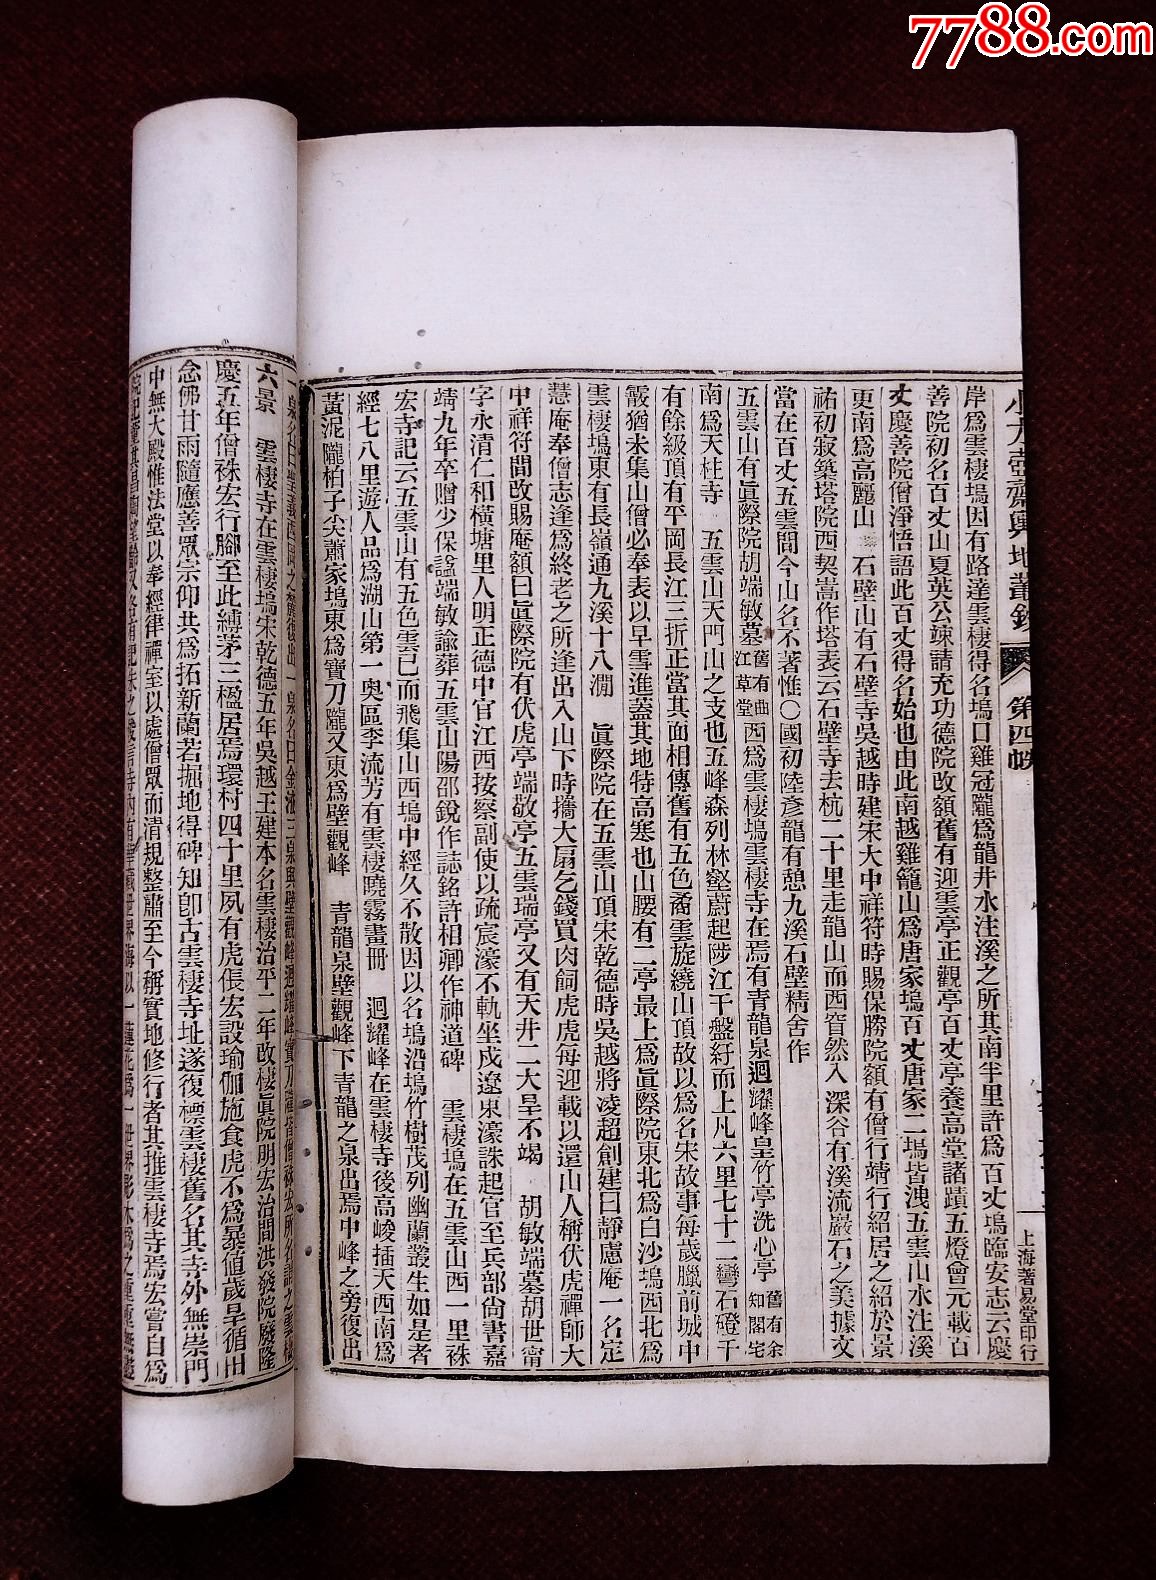 7788.com
小方壺齋輿地叢鈔 第四帙
上海著易堂印行
岸爲雲棲塢因有路達雲棲得名塢口雞冠隴爲龍井水注溪之所其南半里許爲百丈塢臨安志云慶
善院初名百丈山夏英公竦請充功德院改額舊有迎雲亭正觀亭百丈亭養高堂諸蹟五燈會元載白
丈慶善院僧淨悟語此百丈得名始也由此南越雞籠山爲唐家塢百丈唐家二塢皆洩五雲山水注溪
更南爲高麗山 石壁山有石壁寺吳越時建宋大中祥符時賜保勝院額有僧行靖行紹居之紹於景
祐初寂築塔院西契嵩作塔表云石壁寺去杭二十里走龍山而西窅然入深谷有溪流巖石之美據文
當在百丈五雲間今山名不著惟〇國初陸彥龍有憩九溪石壁精舍作
五雲山有眞際院胡端敏墓舊有曲江草堂西爲雲棲塢雲棲寺在焉有青龍泉迴耀峰皇竹亭洗心亭舊有余知閣宅
南爲天柱寺 五雲山天門山之支也五峰森列林壑蔚起陟江干盤紆而上凡六里七十二彎石磴千
有餘級頂有平岡長江三折正當其面相傳舊有五色矞雲旋繞山頂故以爲名宋故事每歲臘前城中
霰猶未集山僧必奉表以早雪進蓋其地特高寒也山腰有二亭最上爲眞際院東北爲白沙塢西北爲
雲棲塢東有長嶺通九溪十八澗 眞際院在五雲山頂宋乾德時吳越將凌超創建曰靜慮庵一名定
慧庵奉僧志逢爲終老之所逢出入山下時攜大扇乞錢買肉飼虎虎每迎載以還山人稱伏虎禪師大
中祥符間改賜庵額曰眞際院有伏虎亭端敬亭五雲瑞亭又有天井二大旱不竭 胡敏端墓胡世甯
字永清仁和橫塘里人明正德中官江西按察副使以疏宸濠不軌坐戍遼東濠誅起官至兵部尚書嘉
靖九年卒贈少保諡端敏諭葬五雲山陽邵銳作誌銘許相卿作神道碑 雲棲塢在五雲山西一里袾
宏寺記云五雲山有五色雲已而飛集山西塢中經久不散因以名塢沿塢竹樹茂列幽蘭叢生如是者
經七八里遊人品爲湖山第一奧區李流芳有雲棲曉霧畫冊 迴耀峰在雲棲寺後高峻插天西南爲
黃泥隴柏子尖蕭家塢東爲寶刀隴又東爲壁觀峰 青龍泉壁觀峰下青龍之泉出焉中峰之旁復出
六景 雲棲寺在雲棲塢宋乾德五年吳越王建本名雲棲治平二年改棲眞院明宏治間洪發院廢隆
慶五年僧袾宏行腳至此縛茅三楹居焉環村四十里夙有虎倀宏設瑜伽施食虎不爲暴值歲旱循田
念佛甘雨隨應善眾宗仰共爲拓新蘭若掘地得碑知卽古雲棲寺址遂復標雲棲舊名其寺外無崇門
中無大殿惟法堂以奉經律禪室以處僧眾而清規整肅至今稱實地修行者其推雲棲寺焉宏嘗自爲